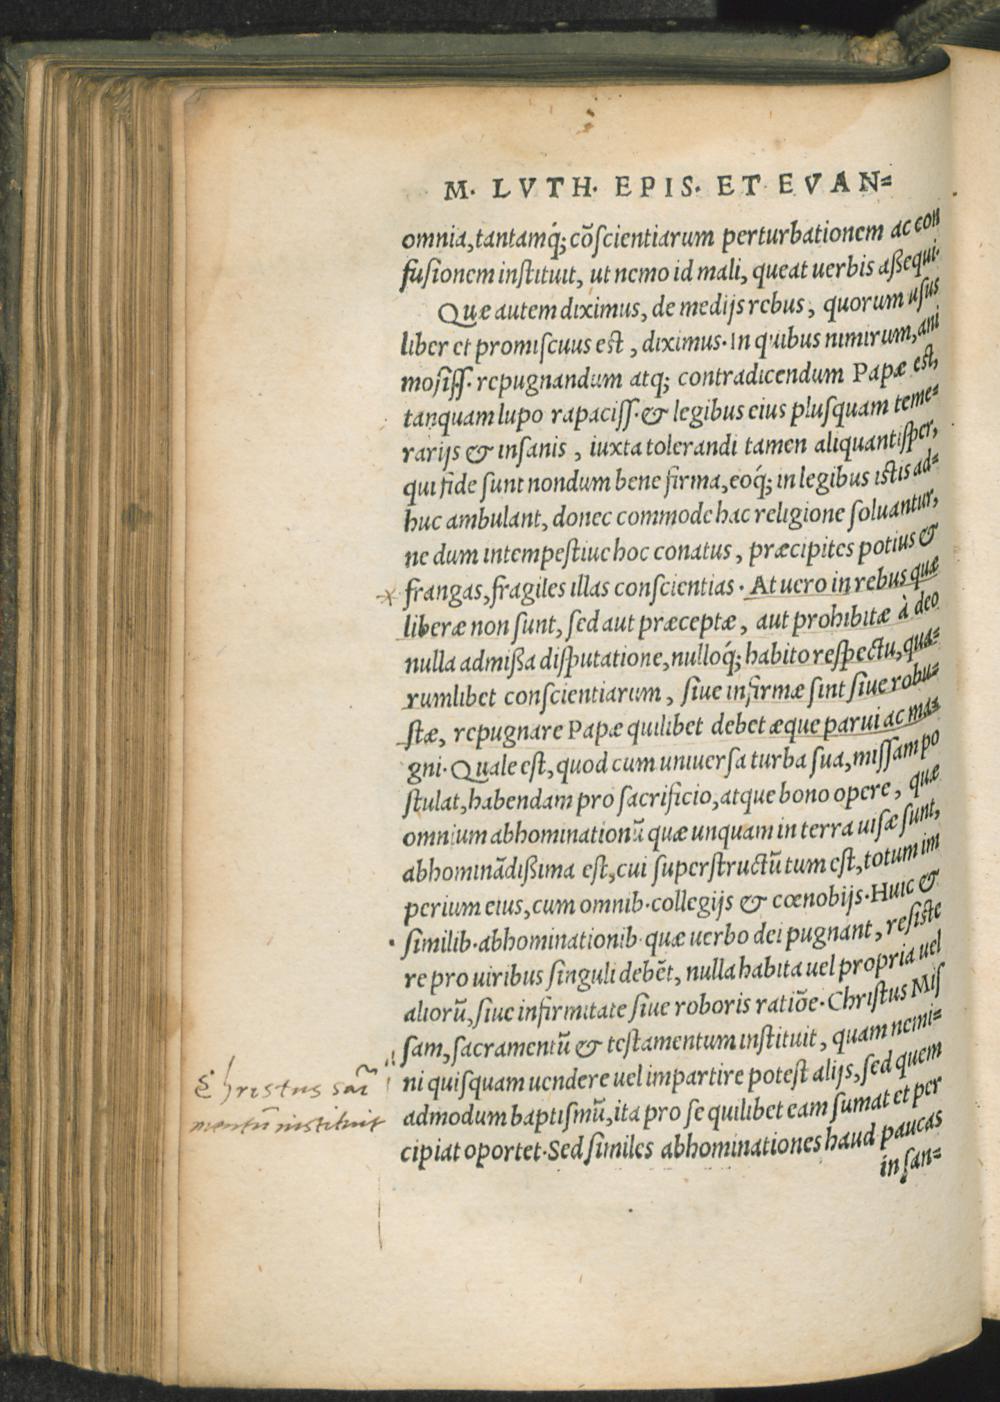 M. LVTH. EPIS. ET EVAN=
omnia, tantamq́; cõscientiarum perturbationem ac con
fusionem instituit, ut nemo id mali, queat uerbis aßequi.
Quæ autem diximus, de medijs rebus, quorum usus
liber et promiscuus est, diximus. In quibus nimirum, ani
mosiss. repugnandum atq; contradicendum Papæ est,
tanquam lupo rapaciss. & legibus eius plusquam teme=
rarijs & insanis, iuxta tolerandi tamen aliquantisper,
qui fide sunt nondum bene firma, eoq́; in legibus istis ad=
huc ambulant, donec commode hac religione soluantur,
ne dum intempestiue hoc conatus, præcipites potius &
frangas, fragiles illas conscientias. At uero in rebus quæ
liberæ non sunt, sed aut præceptæ, aut prohibitæ à deo
nulla admißa disputatione, nulloq́; habito respectu, qua=
rumlibet conscientiarum, siue infirmæ sint siue robu=
stæ, repugnare Papæ quilibet debet æque parui ac ma=
gni. Quale est, quod cum uniuersa turba sua, missam po
stulat, habendam pro sacrificio, atque bono opere, quæ
omnium abhominationũ quæ unquam in terra uisæ sunt,
abhominãdißima est, cui superstructũ tum est, totum im
perium eius, cum omnib. collegijs & cœnobijs. Huic &
similib. abhominationib. quæ uerbo dei pugnant, resiste
re pro uiribus singuli debẽt, nulla habita uel propria uel
aliorũ, siue infirmitate siue roboris ratiõe. Christus Mis
sam, sacramentũ & testamentum instituit, quam nemi=
ni quisquam uendere uel impartire potest alijs, sed quem
admodum baptismũ, ita pro se quilibet eam sumat et per
cipiat oportet. Sed similes abhominationes haud paucas
in san=
Christus sac̃
mentũ instituit